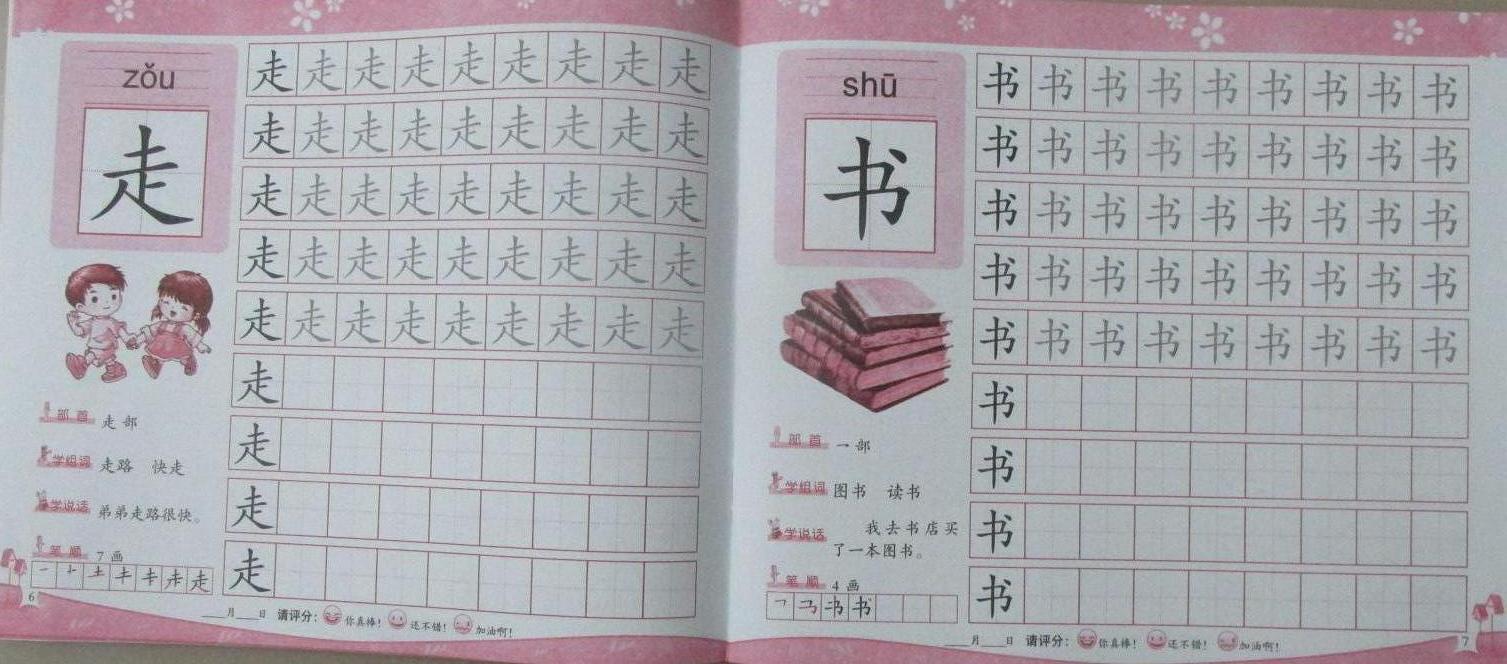 zǒu
走
走 走 走 走 走 走 走 走 走
走 走 走 走 走 走 走 走 走
走 走 走 走 走 走 走 走 走
走 走 走 走 走 走 走 走 走
走 走 走 走 走 走 走 走 走
走
走
走
走
部首 走部
学组词 走路 快走
学说话 弟弟走路很快。
笔顺 7画
走
6
____月____日 请评分: 你真棒! 还不错! 加油啊!
shū
书
书 书 书 书 书 书 书 书 书
书 书 书 书 书 书 书 书 书
书 书 书 书 书 书 书 书 书
书 书 书 书 书 书 书 书 书
书 书 书 书 书 书 书 书 书
书
书
书
书
部首 一部
学组词 图书 读书
学说话 我去书店买
了一本图书。
笔顺 4画
书
____月____日 请评分: 你真棒! 还不错! 加油啊!
7